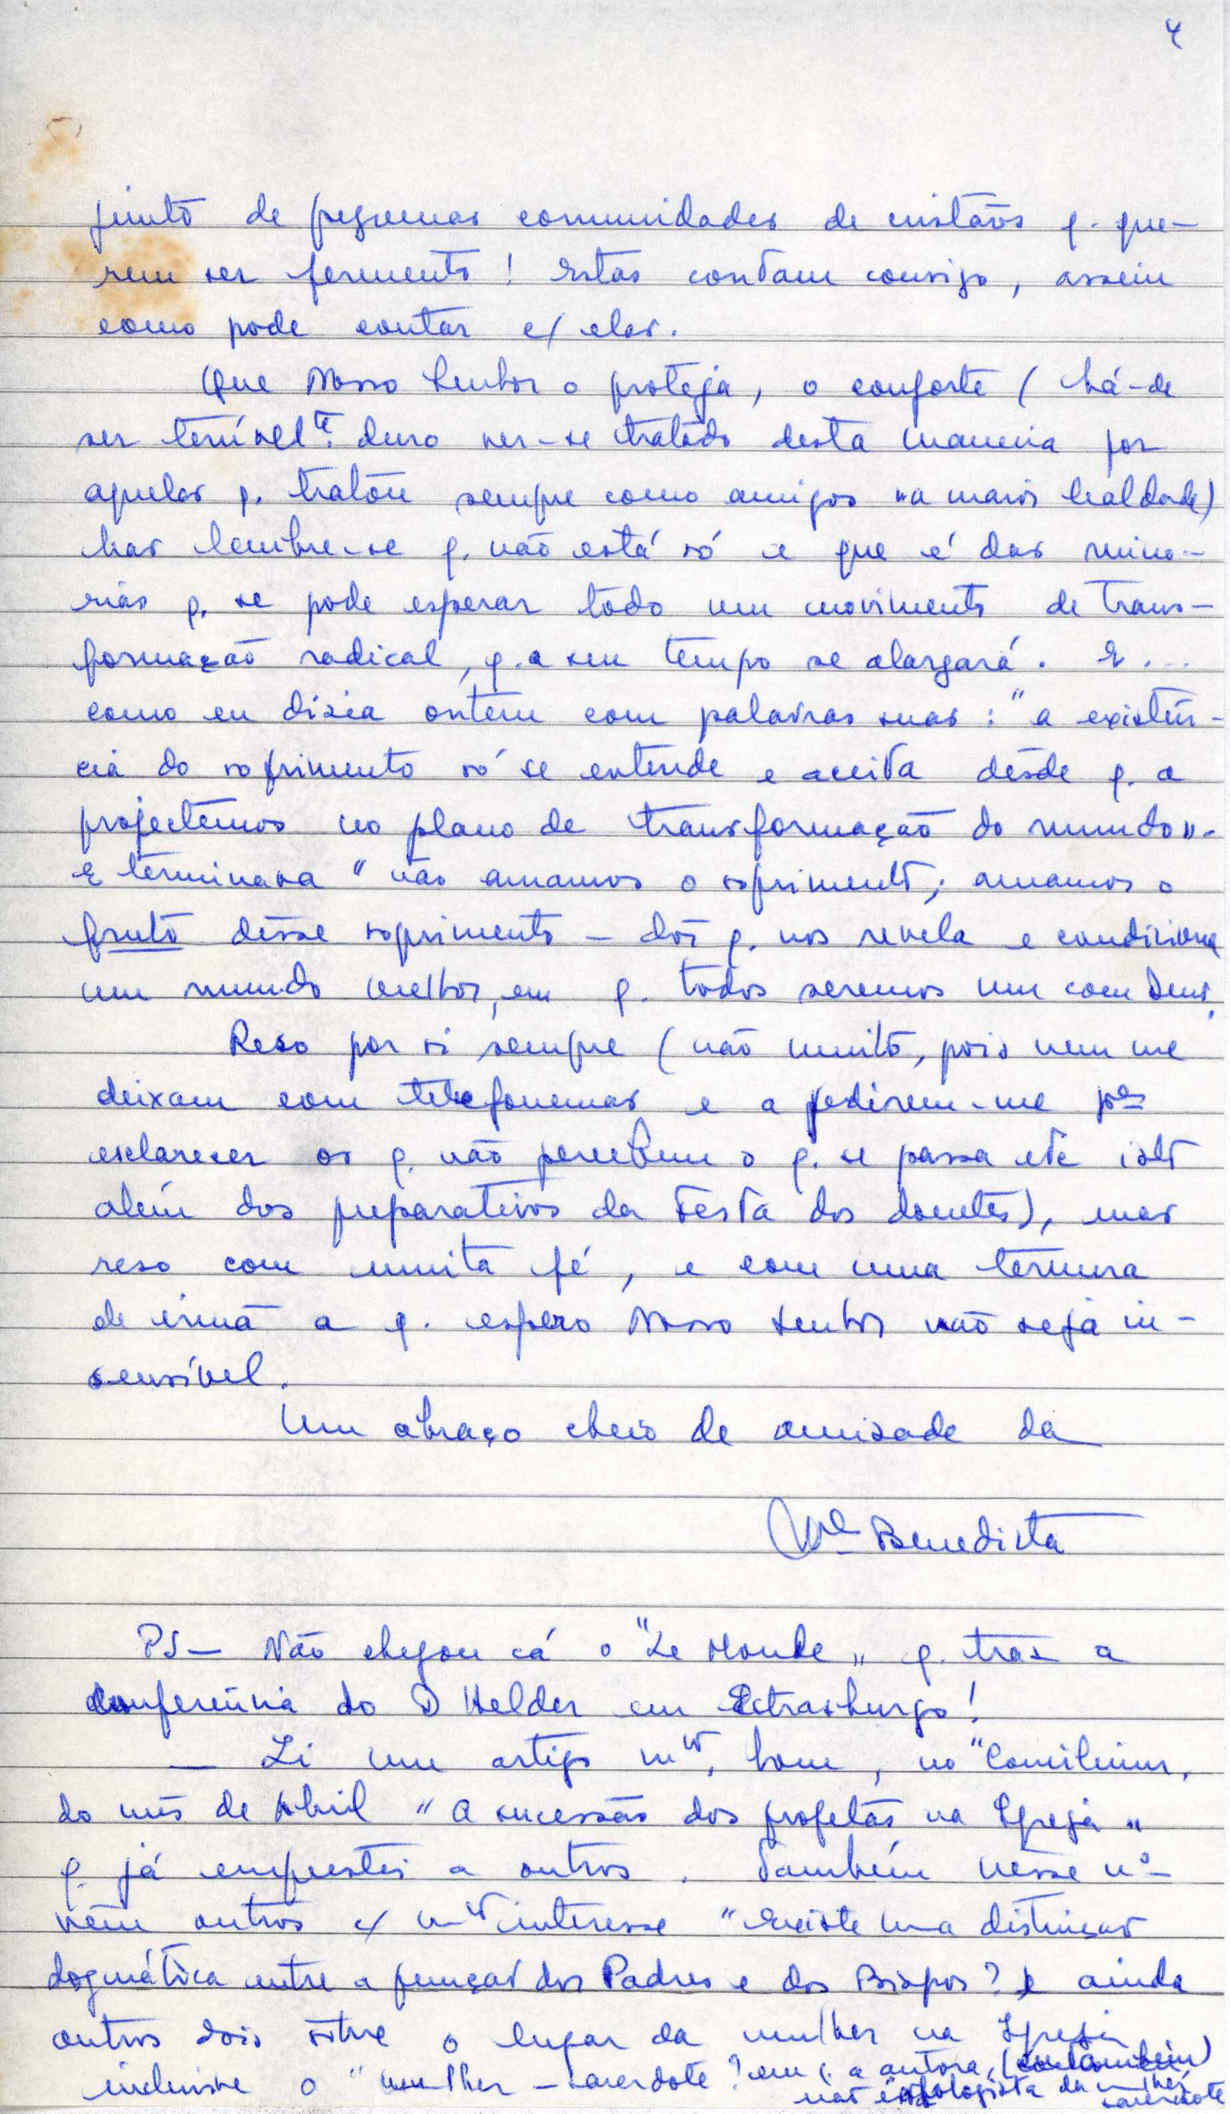 4
junto de pequenas comunidades de cristãos q. que-
rem ser fermento! Estas contam consigo, assim
como pode contar c/ elas.
Que Nosso Senhor o proteja, o conforte (há-de
ser terrívelte. duro ver-se tratado desta maneira por
aqueles q. tratou sempre como amigos na maior lealdade)
Mas lembre-se q. não está só e que é das mino-
rias q. se pode esperar todo um movimento de trans-
formação radical, q. a seu tempo se alargará. E...
como eu dizia ontem com palavras suas: "a existên-
cia do sofrimento só se entende e aceita desde q. a
projectemos no plano de transformação do mundo".
E terminava "não amamos o sofrimento; amamos o
fruto dêsse sofrimento - dor q. nos revela e condiciona
um mundo melhor, em q. todos seremos um com Deus.
Reso por si sempre (não muito, pois nem me
deixam com telefonemas e a pedirem-me pa
esclarecer os q. não percebem o q. se passa etc isto
além dos preparativos da Festa dos doentes), mas
reso com muita fé, e com uma ternura
de irmã a q. espero Nosso Senhor não seja in-
sensível.
Um abraço cheio de amizade da
Ma Benedicta
PS - Não chegou cá o "Le Monde" q. traz a
conferência do D Helder em Estrasburgo!
- Li um artigo mto. bom, no "Concilium,
do mês de Abril "A sucessão dos profetas na Igreja"
q. já emprestei a outros. Também nesse nº
vêm outros c/ mto interesse "Existe uma distinção
dogmática entre a função dos Padres e dos Bispos? E ainda
outros dois sôbre o lugar da mulher na Igreja
inclusive o "mulher - sacerdote? em q. a autora, (eu também)
não é apologista da mulher
sacerdote